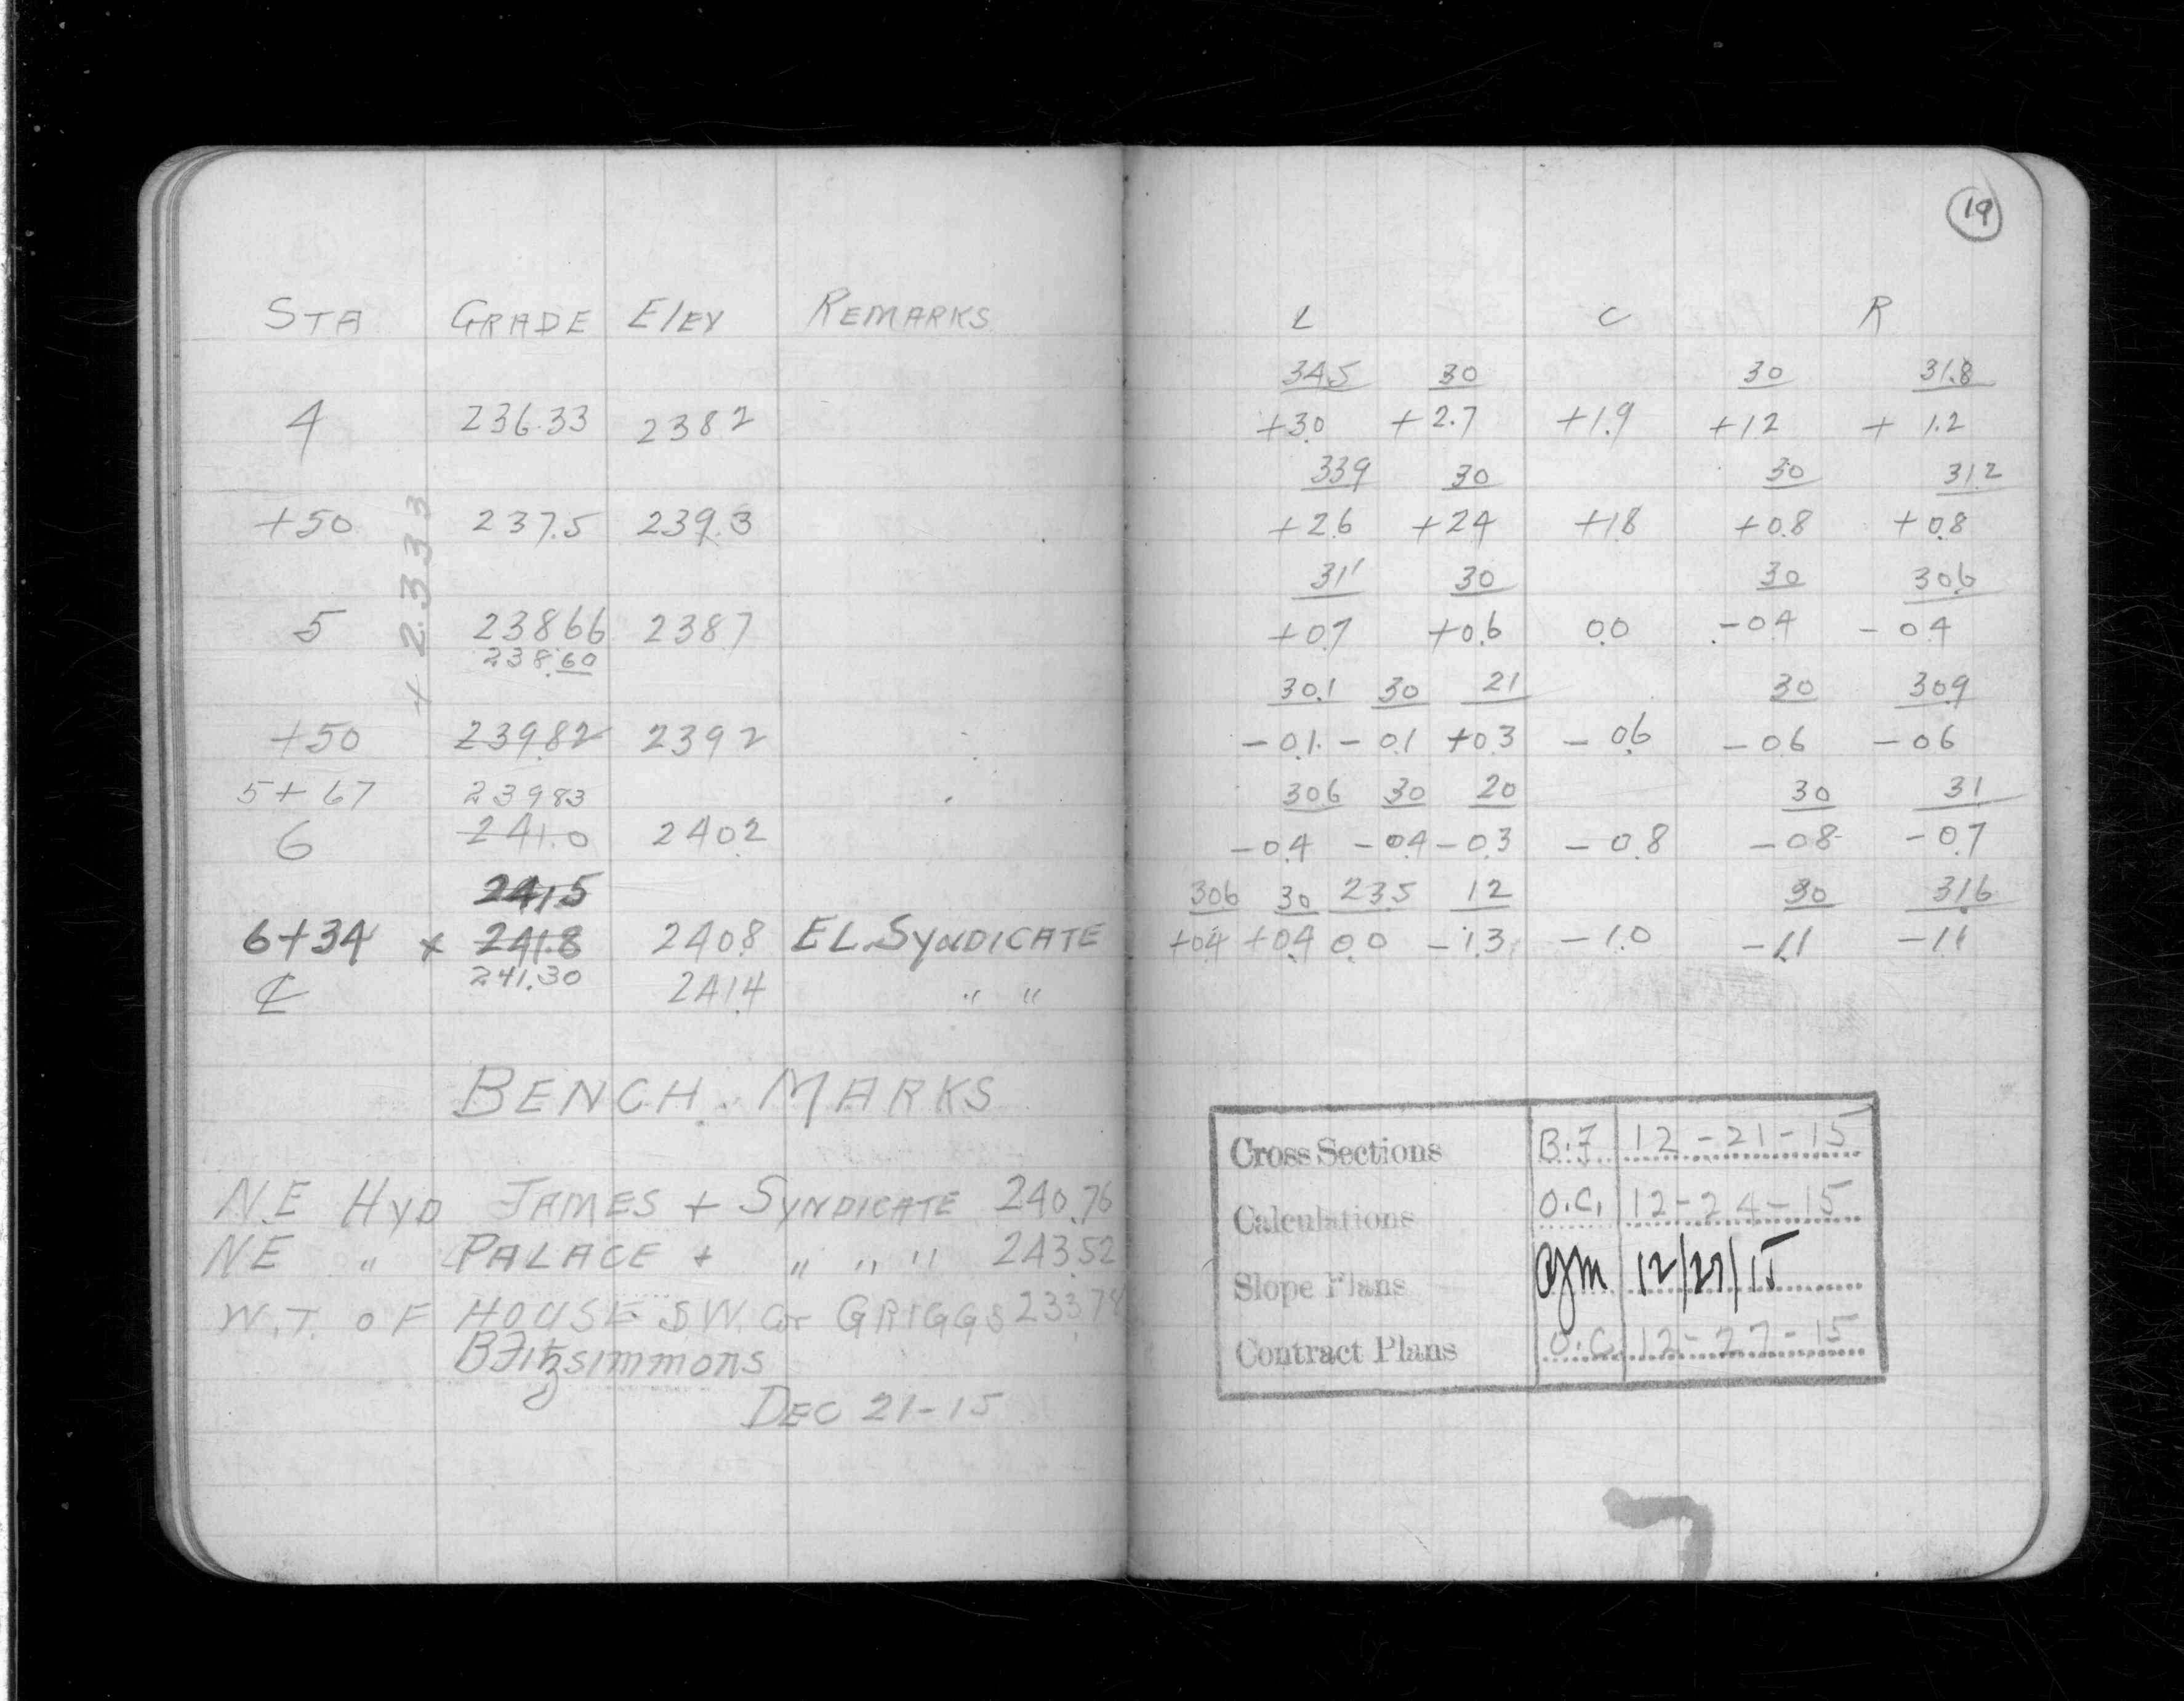 STA GRADE Elev REMARKS
4 236.33 238.2
+50 237.5 239.3
+2.333
5 238.66 238.7
238.60
+50 239.82 239.2
5+67 239.83
6 241.0 240.2
241.5
6+34 x 241.8 240.8 E L. SYNDICATE
241.30
℄ 241.4 " "
BENCH. MARKS
N.E HYD JAMES + SYNDICATE 240.76
NE " PALACE + " " " 243.52
W.T. OF HOUSE S.W. Cor GRIGGS 233.78
B Fitzsimmons
DEC 21-15
19
L C R
34.5 30 30 31.8
+3.0 +2.7 +1.9 +1.2 + 1.2
33.9 30 30 31.2
+2.6 +2.4 +1.8 +0.8 +0.8
31' 30 30 30.6
+0.7 +0.6 0.0 -0.4 -0.4
30.1 30 21 30 30.9
-0.1 -0.1 +0.3 -0.6 -0.6 -0.6
30.6 30 20 30 31
-0.4 -0.4 -0.3 -0.8 -0.8 -0.7
30.6 30 23.5 12 30 31.6
+0.4 +0.4 0.0 -1.3 -1.0 -1.1 -1.1
Cross Sections B.F 12-21-15
Calculations O.C. 12-24-15
Slope Plans 12/27/15
Contract Plans O.C. 12-27-15
7